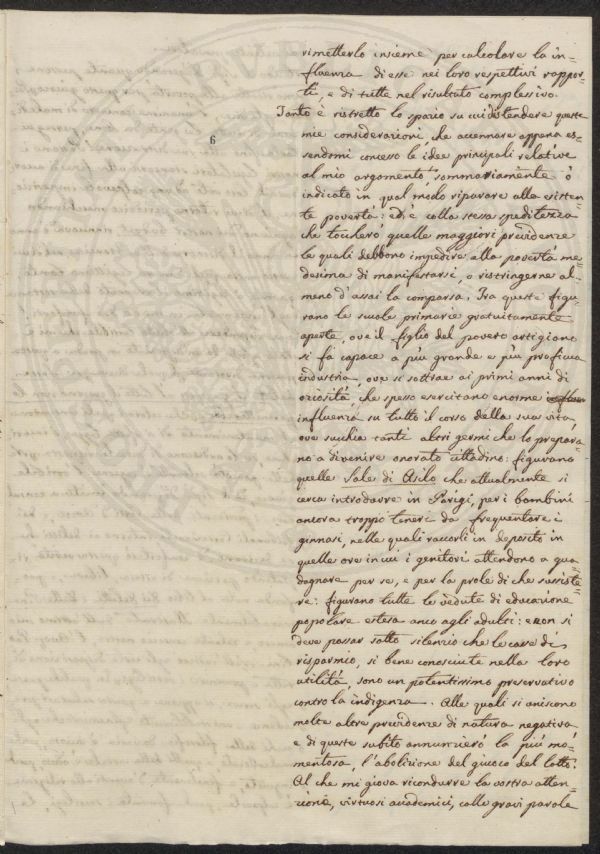 6
rimetterlo insieme per calcolare la in=
fluenza di esse nei loro respettivi rappor=
ti, e di tutte nel risultato complessivo.
Tanto è ristretto lo spazio su cui distendere queste
mie considerazioni che accennare appena es=
sendomi concesso le idee principali relative
al mio argomento sommariamente ò
indicato in qual modo riparare alla esisten=
te povertà: ed è colla stessa speditezza
che toccherò quelle maggiori previdenze
le quali debbono impedire alla povertà me=
desima di manifestarsi, o ristringerne al=
meno d'assai la comparsa. Tra queste figu=
rano le scuole primarie gratuitamente
aperte, ove il figlio del povero artigiano
si fa capace a più grande e più proficua
industria, ove si sottrae ai primi anni di
oziosità, che spesso esercitano enorme
influenza su tutto il corso della sua vita,
ove succhia tanti altri germi che lo prepara=
no a divenire onorato cittadino: figurano
quelle Sale di Asilo che attualmente si
cerca introdurre in Parigi, per i bambini
ancora troppo teneri da frequentare i
ginnasi, nelle quali raccorli in deposito in
quelle ore in cui i genitori attendono a gua=
dagnare per se, e per la prole di che sussiste=
re: figurano tutte le vedute di educazione
popolare estesa anco agli adulti: e non si
deve passar sotto silenzio che le casse di
risparmio, si bene conosciute nella loro
utilità sono un potentissimo preservativo
contro la indigenza. Alle quali si uniscono
molte altre previdenze di natura negativa
e di queste subito annunzierò la più mo=
mentosa, l'abolizione del giuoco del lotto.
Al che mi giova ricondurre la vostra atten=
zione, virtuosi accademici, colle gravi parole